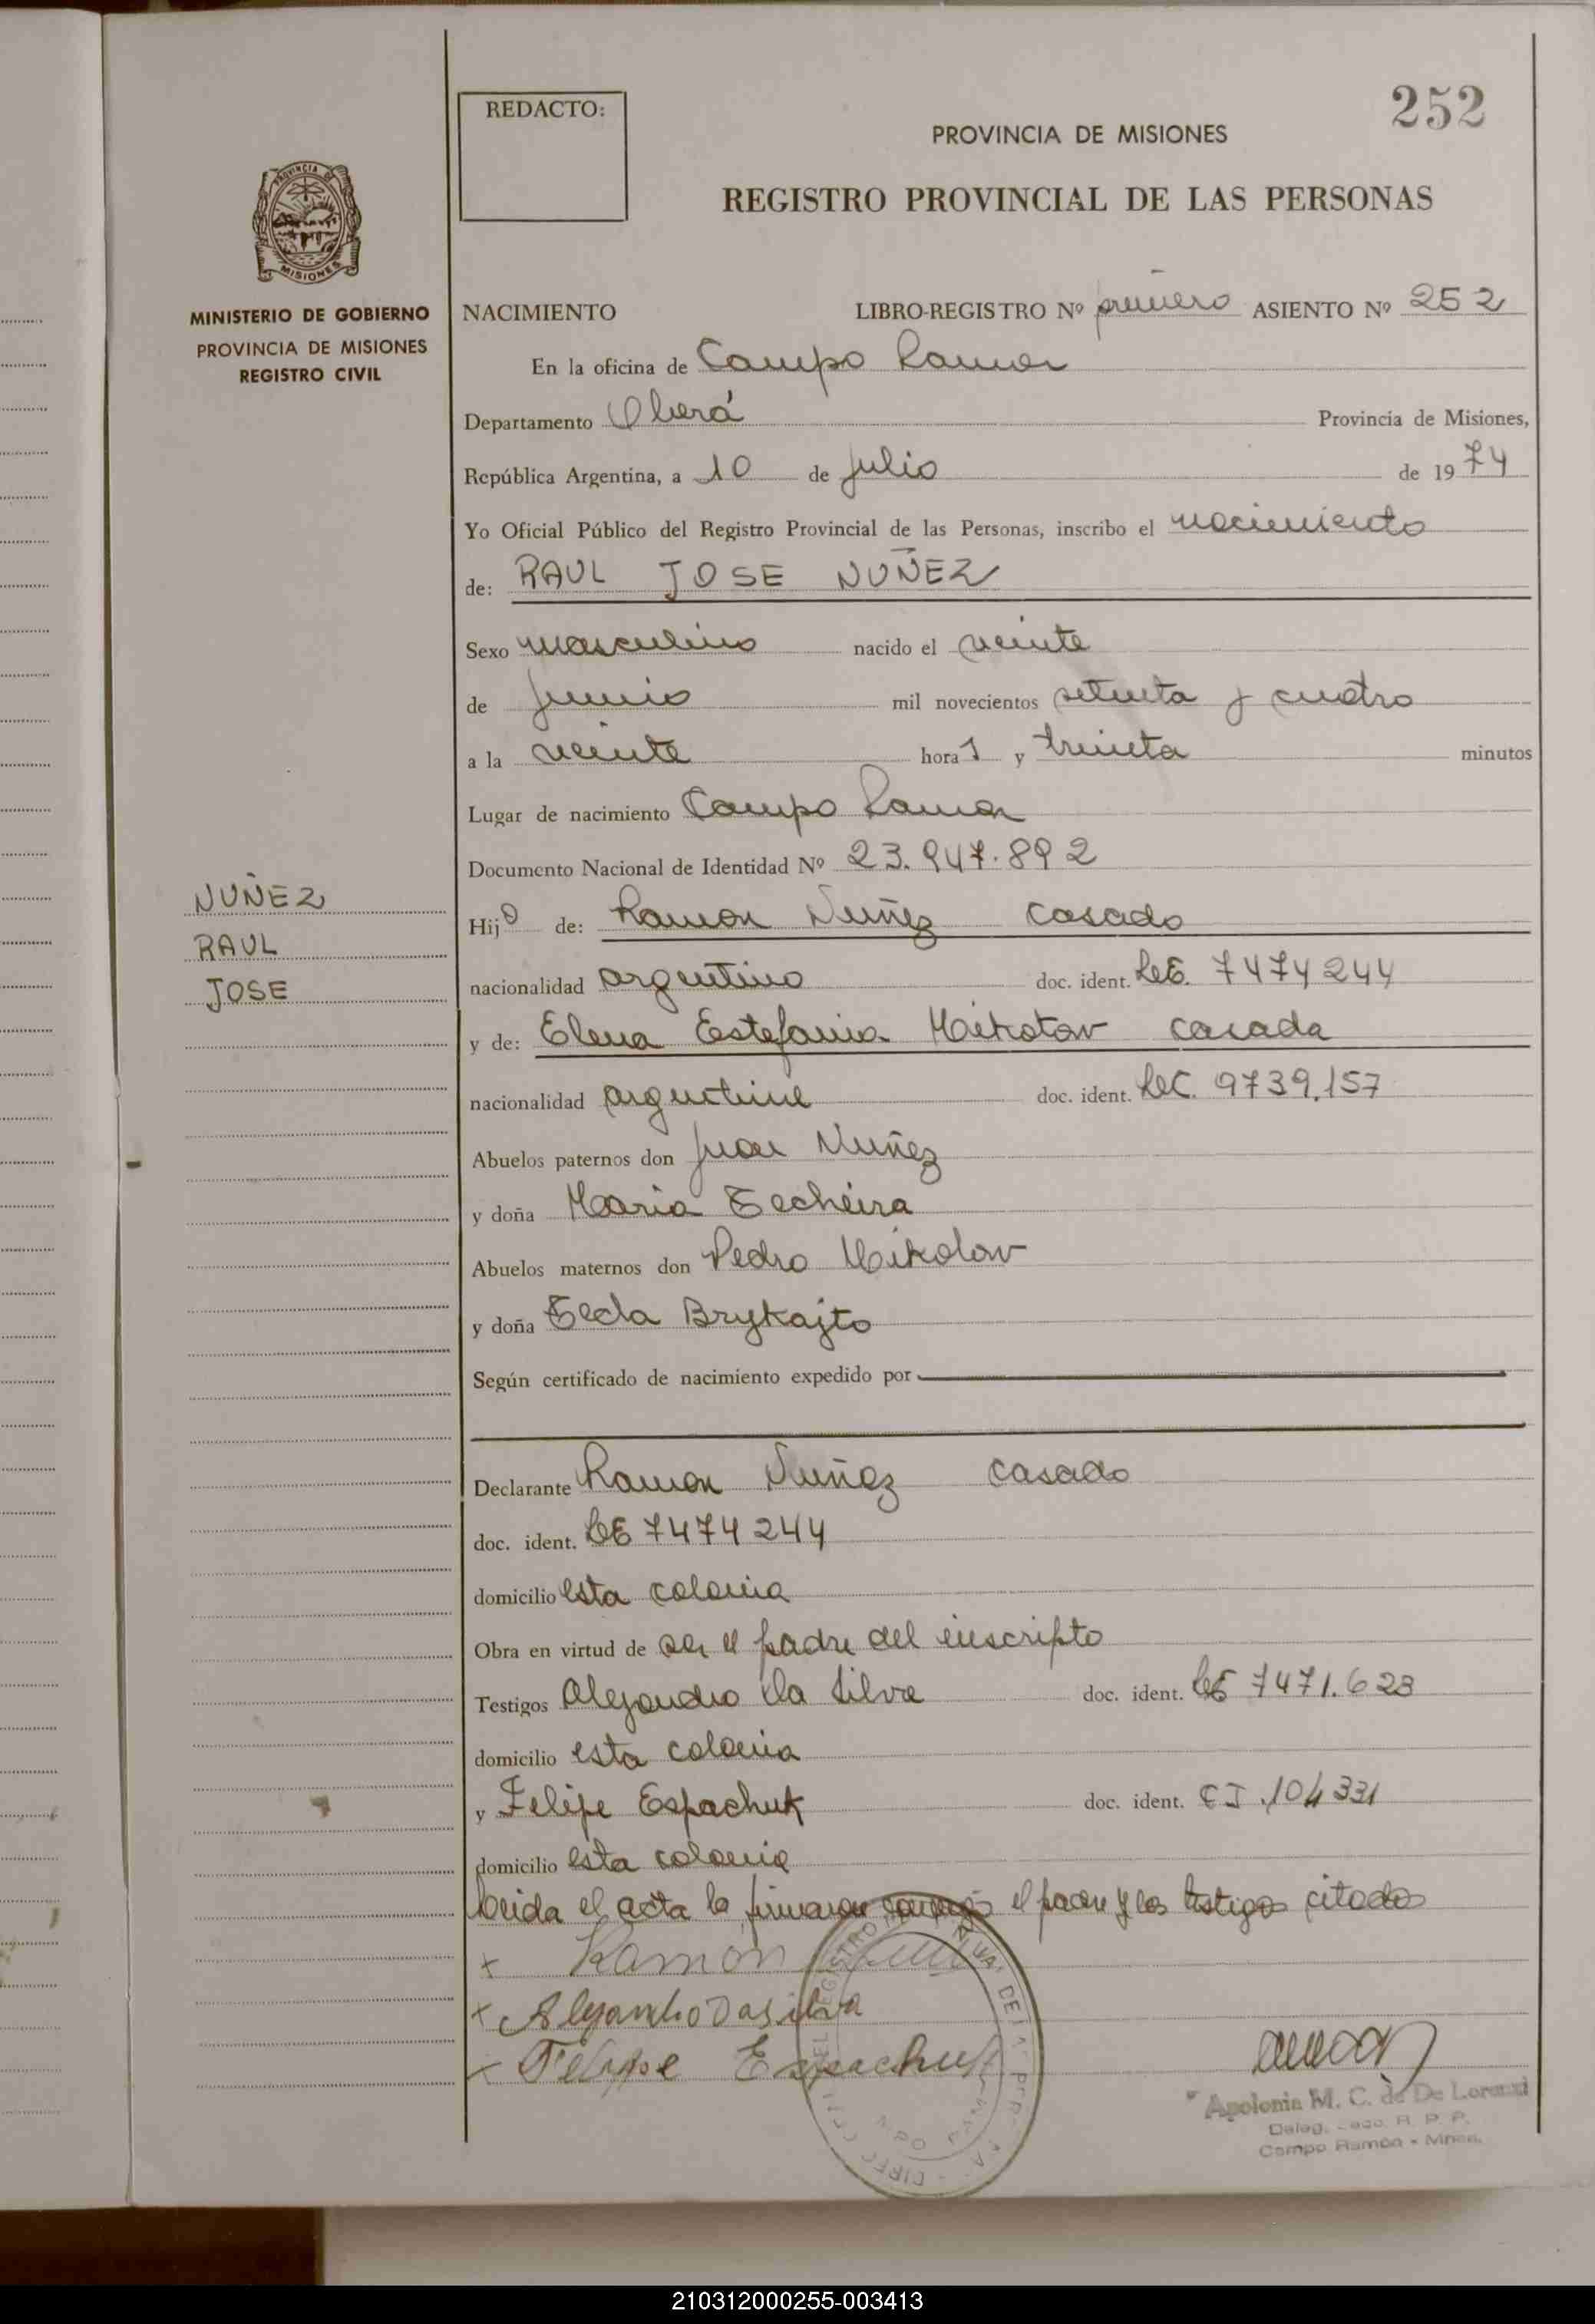 252
REDACTO:
PROVINCIA DE MISIONES
REGISTRO PROVINCIAL DE LAS PERSONAS
PROVINCIA DE
MISIONES
MINISTERIO DE GOBIERNO
PROVINCIA DE MISIONES
REGISTRO CIVIL
NACIMIENTO LIBRO-REGISTRO Nº primero ASIENTO Nº 252
En la oficina de Campo Ramon
Departamento Oberá Provincia de Misiones,
República Argentina, a 10 de Julio de 1974
Yo Oficial Público del Registro Provincial de las Personas, inscribo el nacimiento
de: RAUL JOSE NUÑEZ
Sexo masculino nacido el veinte
de Junio mil novecientos setenta y cuatro
a la veinte horas y treinta minutos
Lugar de nacimiento Campo Ramon
Documento Nacional de Identidad Nº 23.947.892
NUÑEZ
RAUL
JOSE
Hijo de: Ramon Nuñez casado
nacionalidad argentino doc. ident. L.E. 7474244
y de: Elena Estefania Mikolow casada
nacionalidad argentina doc. ident. L.C. 9739.157
Abuelos paternos don Juan Nuñez
y doña Maria Techeira
Abuelos maternos don Pedro Mikolow
y doña Tecla Brykajto
Según certificado de nacimiento expedido por
Declarante Ramon Nuñez casado
doc. ident. LE 7474244
domicilio esta colonia
Obra en virtud de ser el padre del inscripto
Testigos Alejandro Da Silva doc. ident. LE 7471.623
domicilio esta colonia
y Felipe Espachuk doc. ident. CI.104331
domicilio esta colonia
Leida el acta la firmaron conmigo el padre y los testigos citados
x Ramon
x Alejandro Dasilva
x Felippe Espachuk
Apolonia M. C. de De Lorenzi
Deleg. R. P. P.
Campo Ramón - Mnes.
210312000255-003413